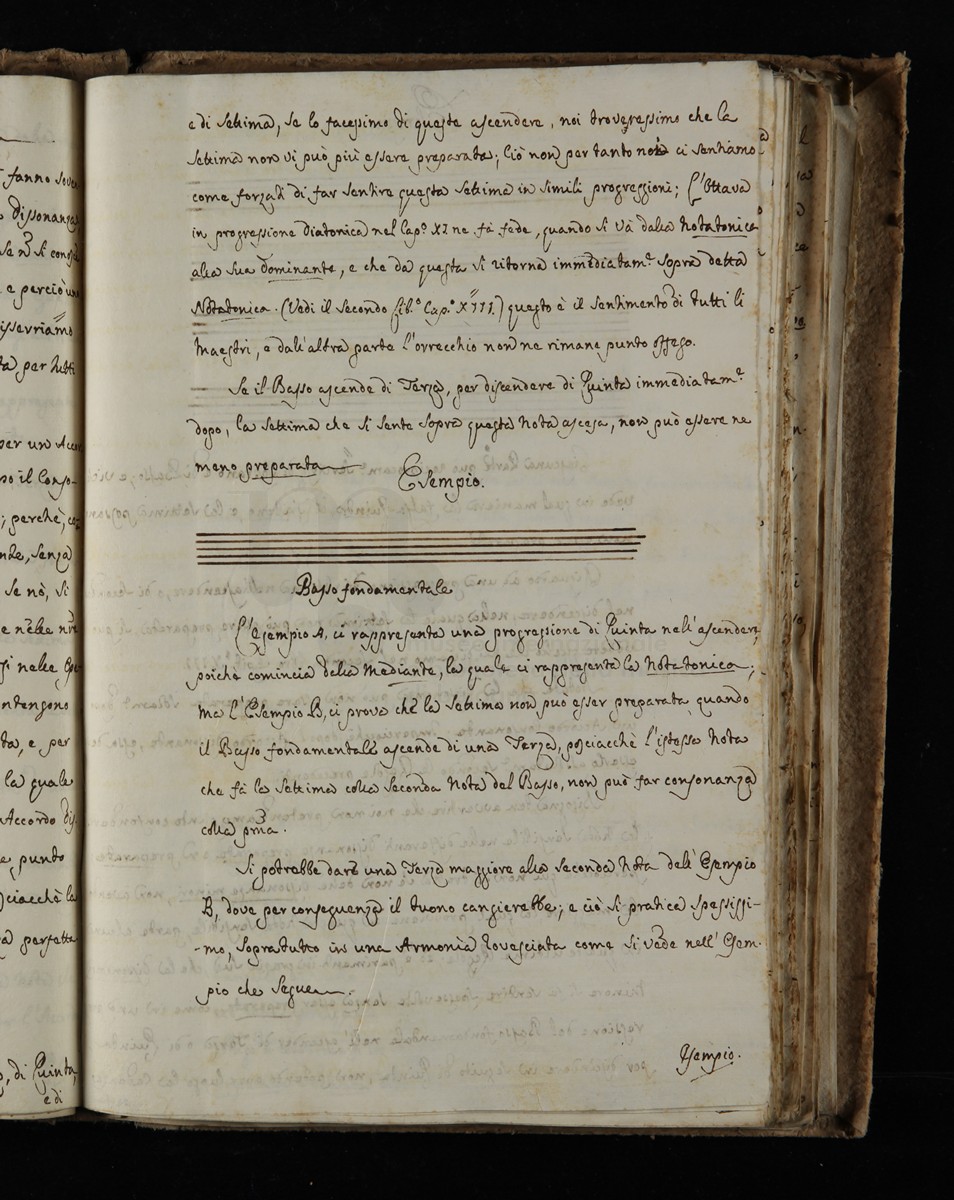 e di Settima, se lo facessimo di queste ascendere, noi trovaressimo che la
settima non vi può più essere preparata; Ciò non per tanto noi ci sentiamo
come forzati di far sentire questa settima in simili progressioni; l'Ottava
in progressione diatonica nel Cap.º XI ne fà fede, quando si và dalla Notatonica
alla sua dominante, e che da questa si ritorna immediatam.e sopra detta
Notatonica. (Vedi il secondo lib.º Cap.º XIII.) questo è il sentimento di tutti li
Maestri, e dall'altra parte l'orrecchio non ne rimane punto offeso.
Se il Basso ascende di Terza, per discendere di Quinta immediatam.e
dopo, la settima che si sente sopra questa Nota ascesa, non può essere ne
meno preparata
Esempio.
Basso fondamentale
L'Esempio A, ci rappresenta una progressione di Quinta nell'ascendere,
poichè comincia dalla Mediante, la quale ci rappresenta la Notatonica;
Ma l'Esempio B, ci prova che la Settima non può esser preparata quando
il Basso fondamentale ascende di una Terza, posciacchè l'istessa Nota
che fà la settima colla seconda Nota del Basso, non può far consonanza
colla pma.
Si potrebbe dare una Terza maggiore alla seconda Nota dell'Esempio
B, dove per conseguenza il tuono cangierebbe; e ciò si pratica spessissi-
-mo, sopratutto in una Armonia rovesciata come si vede nell'Esem-
pio che segue.
Esempio.
fanno
dissonanza
e perciò
per tutti
per un
perchè
senza
se nò, si
ntengono
ta, e per
la quale
Accordo
punto
ciacchè la
perfetta
di Quinta,
e di